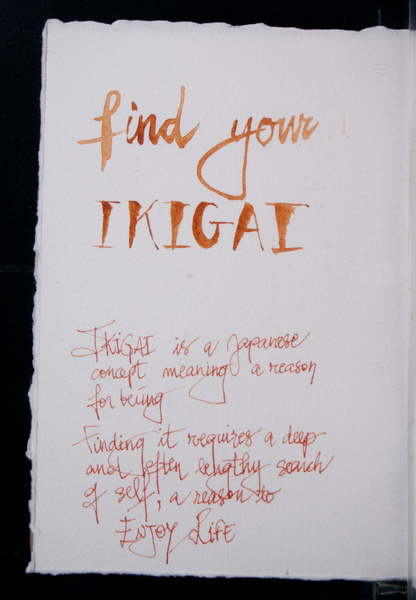 find your
IKIGAI
IKIGAI is a Japanese
concept meaning a reason
for being
Finding it requires a deep
and often lengthy search
of self, a reason to
ENJOY LIFE